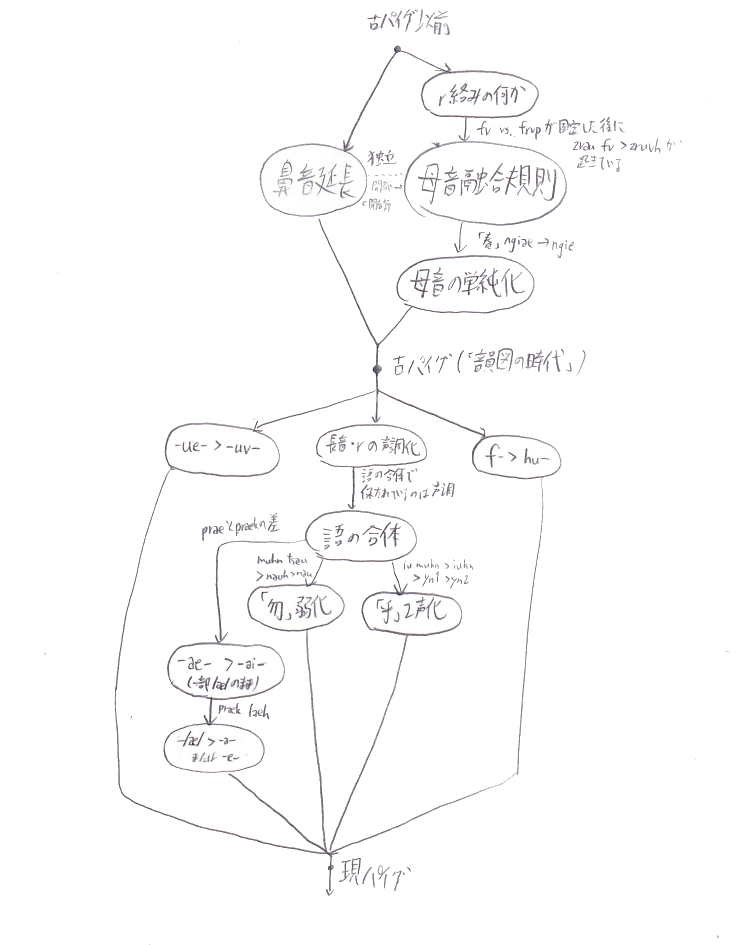 古パイグ以前
r絡みの何か
fv vs. frupが固定した後に
zrau fv > zruvhが
起きている
鼻音延長
独立
母音融合規則
「春」ngiae→ngie
母音の単純化
古パイグ(「韻図の時代」)
-ue- > -uv-
長音・rの声調化
f- > hu-
語の合体で
保たれているのは声調
語の合体
praeとpraekの差
muhn tsau
> nauh > nau
iu muhn > iuhn
> yn1 > yn2
「勿」弱化
「乎」2声化
-ae- > -ai-
(一部/ae/のまま)
praek laeh
-/ae/ > -a-
または -e-
現パイグ